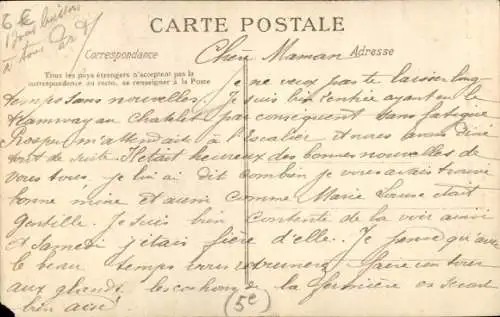 CARTE POSTALE
Correspondance
Adresse
Tous les pays étrangers n'acceptent pas la
correspondance au recto, se renseigner à la Poste
Chère Maman
Je ne veux pas te laisser long-
temps sans nouvelles. Je suis bien rentrée ayant eu le
tramway au Chatelet par conséquent sans fatigue
m'attendait à l'escalier et nous avons diné
tout de suite. Il était heureux des bonnes nouvelles de
vous tous. je lui ai dit combien je vous avais trouvé
bonne mine et aussi comme Marie Louise était
gentille. Je suis bien contente de la voir ainsi
et Samedi j'étais fière d'elle. Je pense qu'avec
le beau temps vous
aux glands. les cochons de la fermière
bien aisé
(5e)